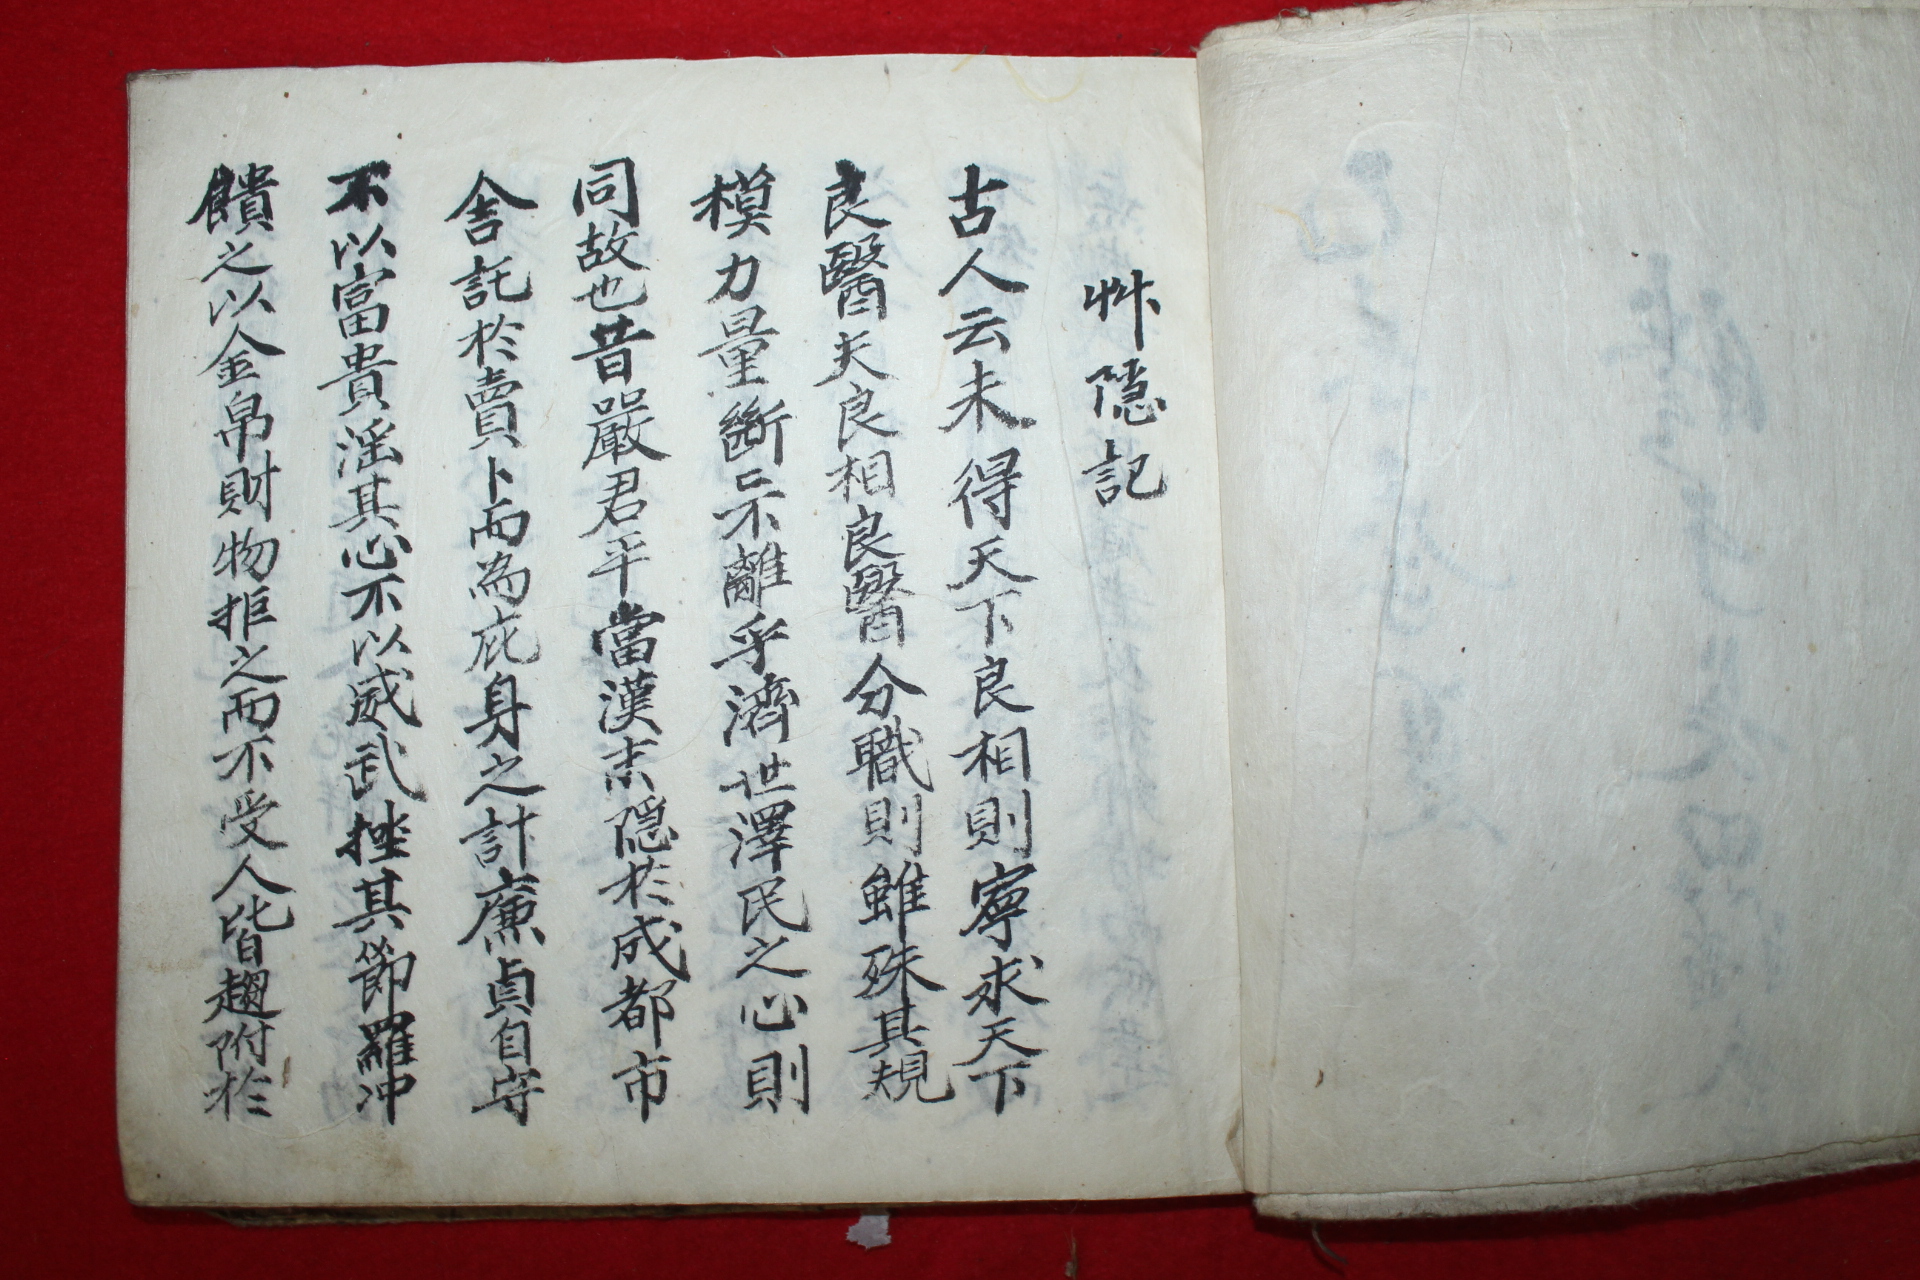 艸隱記
古人云未得天下良相則寧求天下
良醫夫良相良醫分職則雖殊其規
模力量斷〻不離乎濟世澤民之心則
同故也昔嚴君平當漢末隱於成都市
舍託於賣卜而為庇身之計廉貞自守
不以富貴淫其心不以威武挫其節羅冲
饋之以金帛財物拒之而不受人皆趨附於